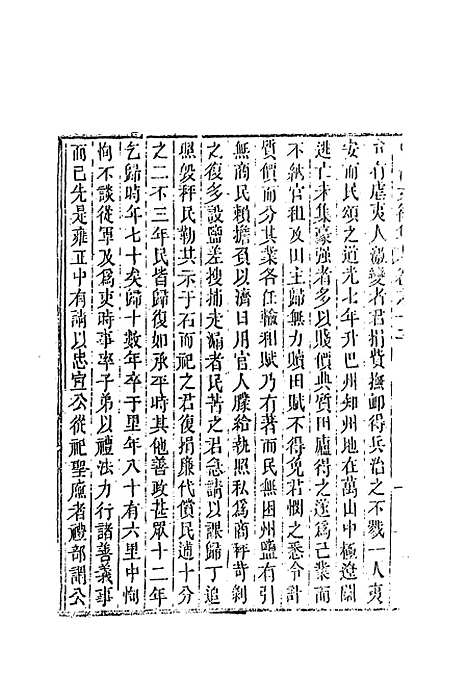 有虐夷人激變者君捐費撫卹得兵治之不戮一人夷
安而民頌之道光七年升巴州知州地在萬山中極遼闊
逃亡未集豪強者多以賤價典質田廬得之遂爲己業而
不納官租及田主歸無力贖田賦不得免君憫之悉令計
質價而分其業各任輸和賦乃有著而民無困州鹽有引
無商民賴擔負以濟日用官人朦給執照私爲商秤苛剝
之復多設鹽差搜捕走漏者民苦之君急請以課歸丁追
照毀秤民勒其示于石而祀之君復捐廉代償民逋十分
之二不三年民皆歸復如承平時其他善政甚眾十二年
乞歸時年七十矣歸十數年卒于里年八十有六里中恂
恂不談從軍及爲吏時事率子弟以禮法力行諸善義事
而已先是雍正中有請以忠宣公從祀聖廡者禮部謂公